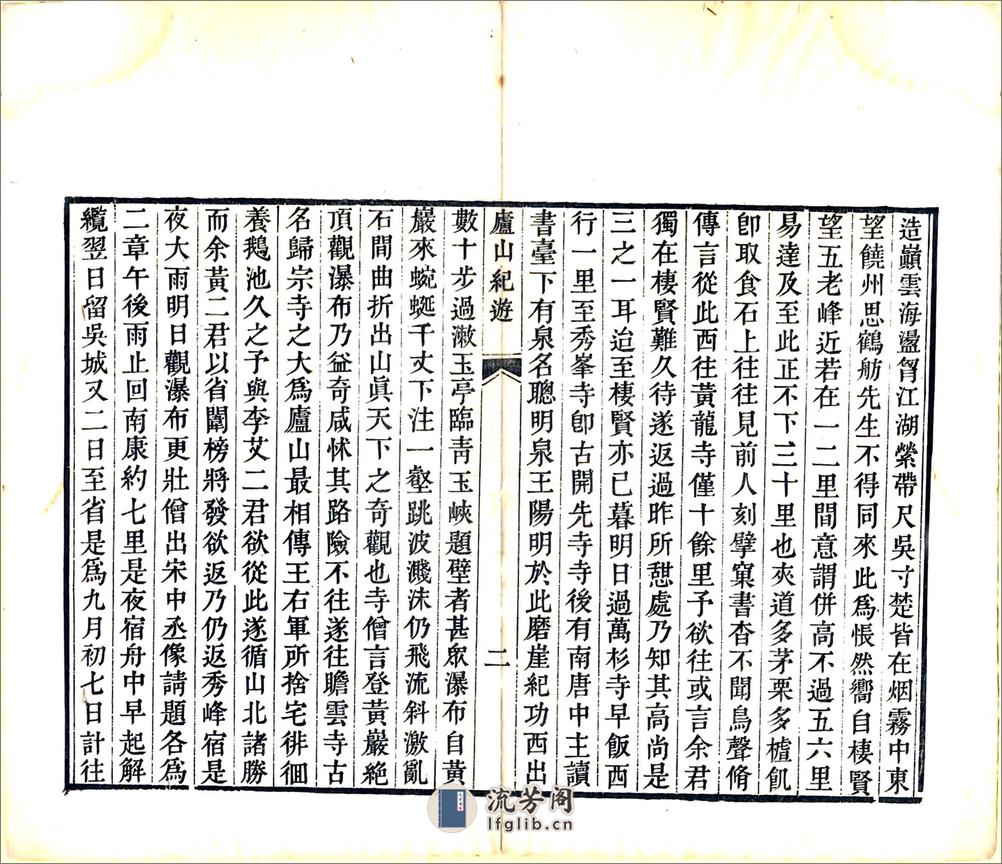 造巓雲海盪胷江湖縈帶尺吳寸楚皆在烟霧中東
望饒州思鶴舫先生不得同來此爲悵然嚮自棲賢
望五老峰近若在一二里間意謂併高不過五六里
易達及至此正不下三十里也夾道多茅栗多樝飢
卽取食石上往往見前人刻擘窠書杳不聞鳥聲脩
傳言從此西往黃龍寺僅十餘里予欲往或言余君
獨在棲賢難久待遂返過昨所憇處乃知其高尚是
三之一耳迨至棲賢亦已暮明日過萬杉寺早飯西
行一里至秀峯寺卽古開先寺寺後有南唐中主讀
書臺下有泉名聰明泉王陽明於此磨崖紀功西出
廬山紀遊 二
數十步過漱玉亭臨靑玉峽題壁者甚眾瀑布自黃
巖來蜿蜒千丈下注一壑跳波濺沫仍飛流斜激亂
石間曲折出山眞天下之奇觀也寺僧言登黃巖絕
頂觀瀑布乃益奇咸怵其路險不往遂往瞻雲寺古
名歸宗寺寺之大爲廬山最相傳王右軍所捨宅徘徊
養鵝池久之予與李艾二君欲從此遂循山北諸勝
而余黃二君以省闈榜將發欲返乃仍返秀峰宿是
夜大雨明日觀瀑布更壯僧出宋中丞像請題各爲
二章午後雨止回南康約七里是夜宿舟中早起解
纜翌日留吳城又二日至省是爲九月初七日計往
流芳阁
lfglib.cn